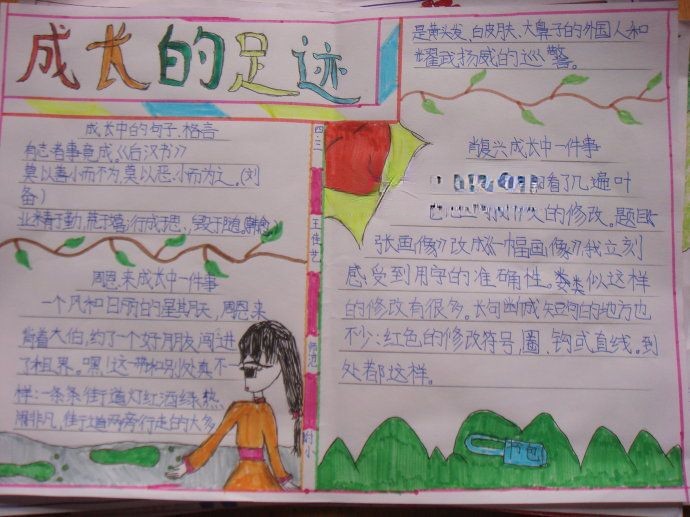 成长的足迹
成长中的句子.格言
有志者事竟成《后汉书》
莫以善小而不为,莫以恶小而为之。(刘
备)
业精于勤,荒于嬉;行成于思,毁于随。(韩愈)
周恩来成长中一件事
一个风和日丽的星期天,周恩来
背着大伯,约了一个好朋友闯进
了租界。嘿!这一带和别处真不一
样:一条条街道灯红酒绿热
闹非凡,街道两旁行走的大多
四.三
王佳艺
师范
附小
是黄头发、白皮肤、大鼻子的外国人和
耀武扬威的巡警。
肖复兴成长中一件事
看了几遍叶
的修改。题目
张画像》改成《一幅画像》我立刻
感受到用字的准确性。类似这样
的修改有很多。长句 成短句的地方也
不少;红色的修改符号,圈、钩或直线。到
处都这样。
书包